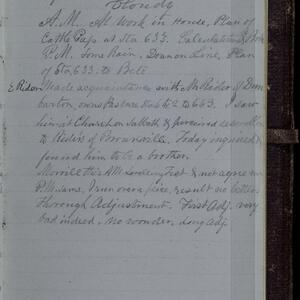 Cloudy
A.M. At Work in House, Plan of
Cattle Pass at Sta 633. Calculations & Bets
P.M. Some Rain, Down on Line, Plan
of Sta 633. to Bete
E Rideu Made acquaintance with Mr Rideu of Dum
barton owns Pasture Sta 652 to 663. I saw
him at Church on Sabbath & perceived resembl
to Rideu of Brownville. Today inquired &
found him to be a brother.
Morrill this AM Landing Test & not agree in
P.M. same, I run over a few, result no better
thorough Adjustment. First Adj. very
bad indeed, no wonder, long adj